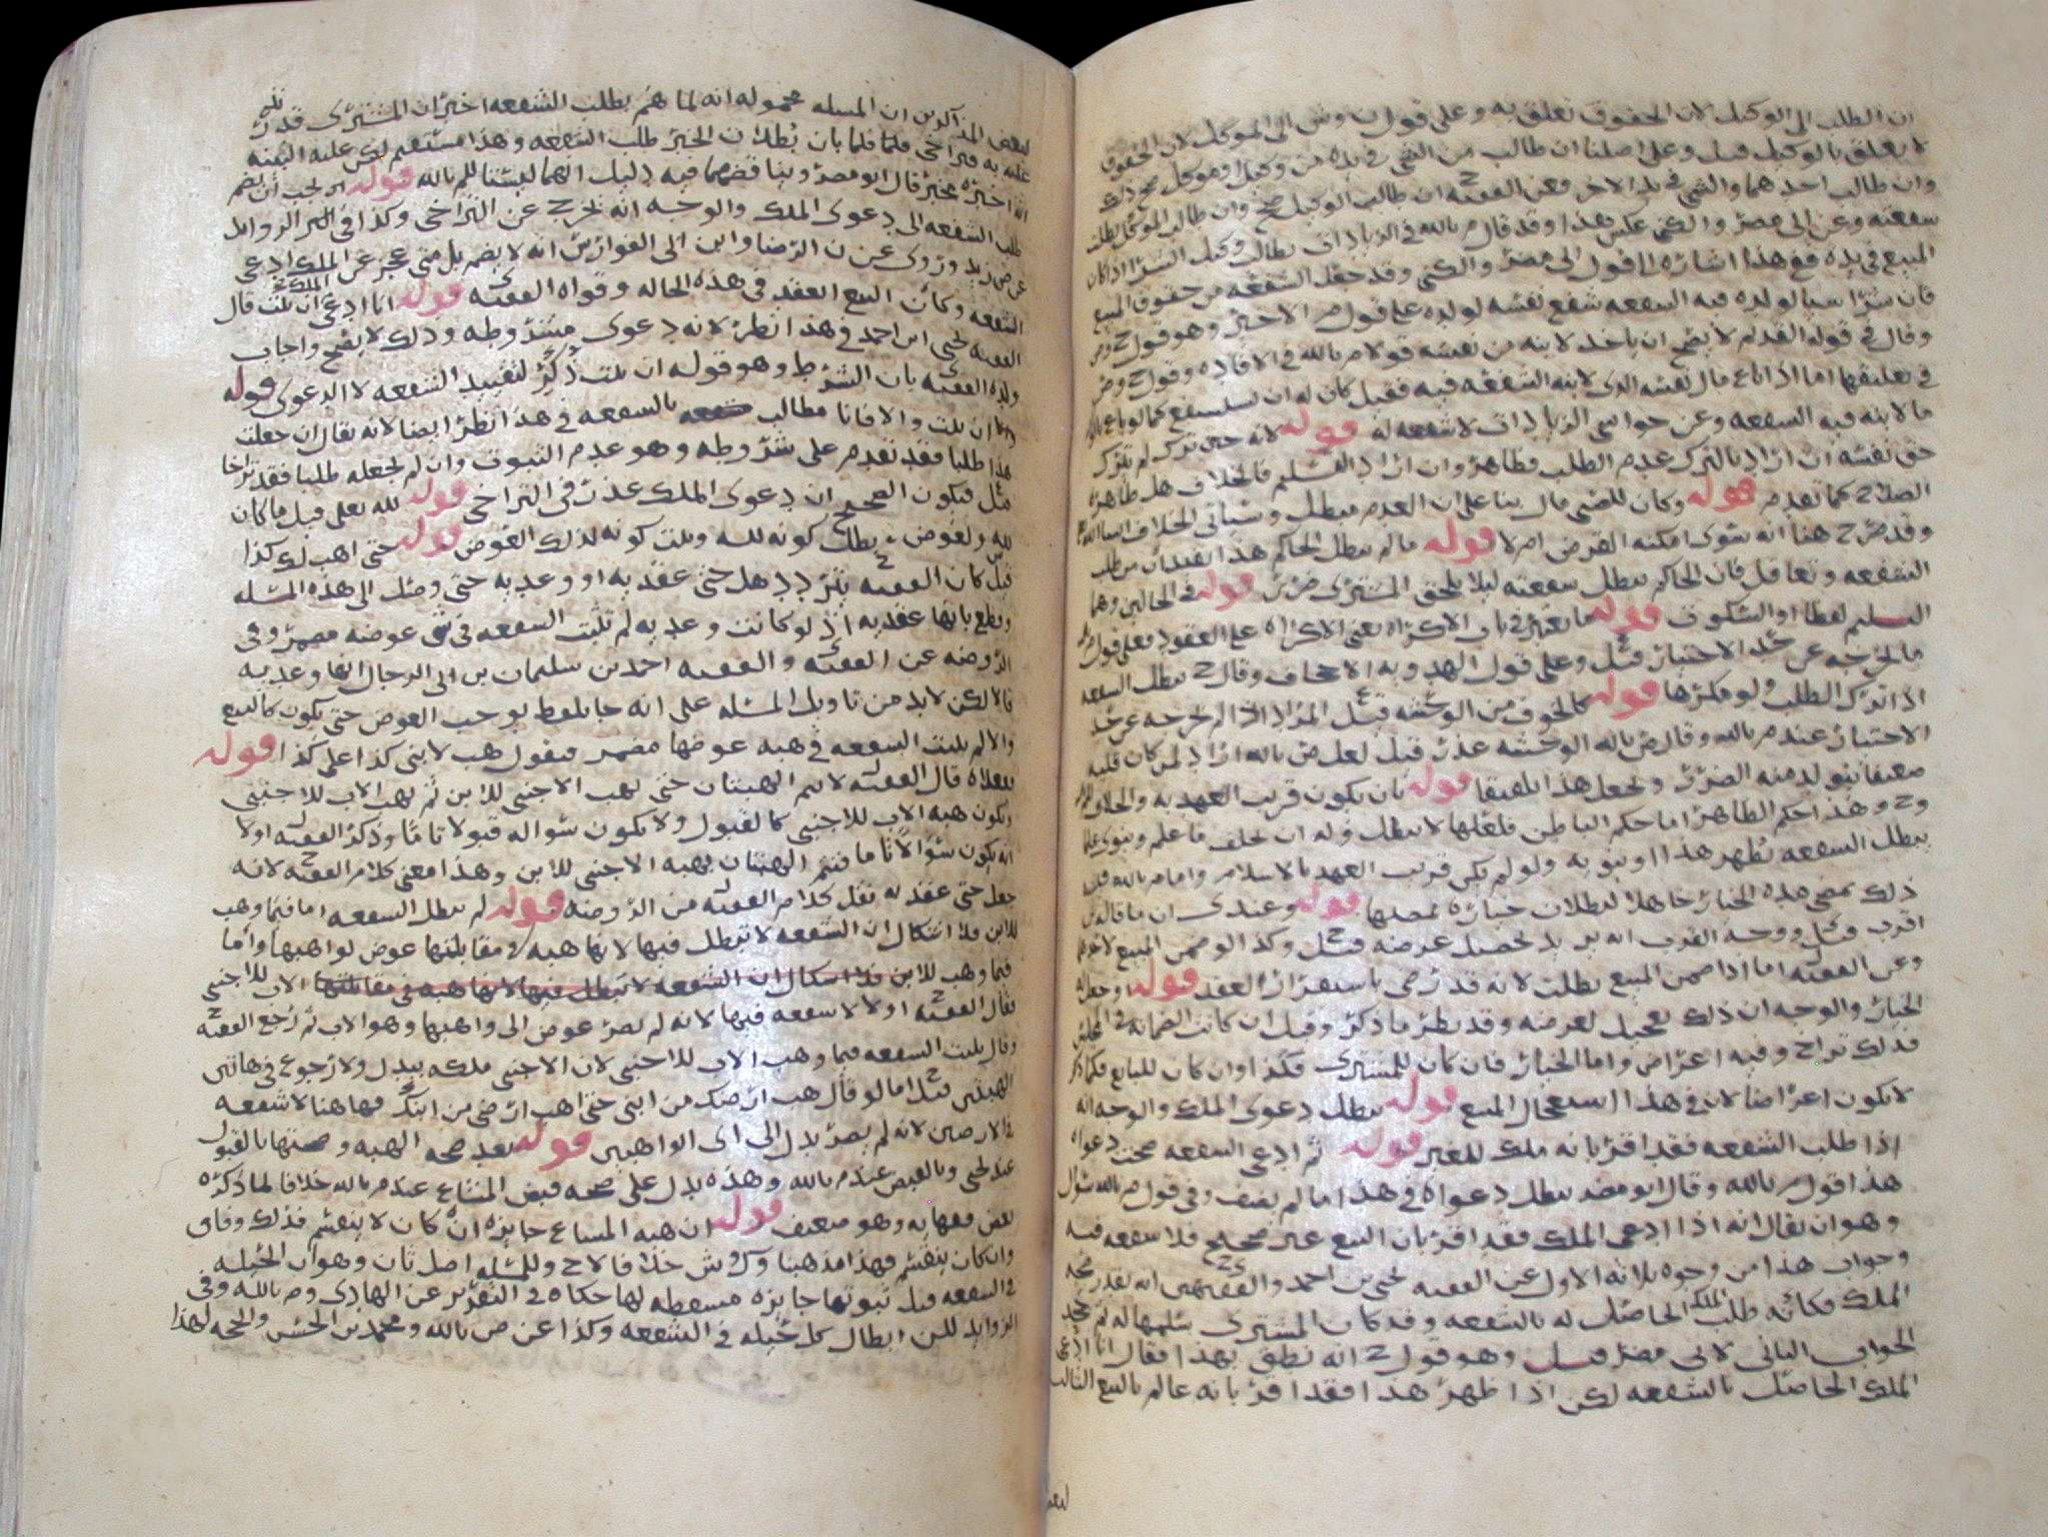 ان الطلب الى الوكيل لان الحقوق تعلق به وعلى قول ن وش الى الموكل لان الحقوق
لا تعلق بالوكيل قيل وعلى اصلنا ان طالب من الشي في يده من وكيل او موكل صح ذلك
وان طالب احدهما والشي في يد الاخر فعن الفقيه ح ان طالب الوكيل صح وان طالب الموكل بطلت
شفعته وعن ابي مضر والكني عكس هذا وقد قال م بالله في الزيادات يطالب وكيل الشرا اذا كان
المبيع في يده فع هذا اشاره الى قول ابي مضر والكني وقد جعل الشفعه من حقوق المبيع
فان شرا شيا لولده فيه الشفعه شفع نفسه لولده على قول م الاخير وهو قول ح
وقال في قوله القديم لا يصح ان ياخذ لابنه من نفسه قولا م بالله في الافاده وقول ح وص
في تعليقها اما اذا باع مال نفسه الذي لابنه الشفعه فيه فقيل كان له ان يستشفع كما لو باع
ما لابنه فيه الشفعه وعن حواشي الزيادات لا شفعه له قوله لانه حين ترك لم يترك
حق نفسه ان اراد بالترك عدم الطلب فظاهر وان اراد التسليم فالخلاف هل ظاهره
الصلاح كما تقدم قوله وكان للصبي مال بنا على ان العدم مبطل وسياتي الخلاف
وقد صرح هنا انه سوى امكنه القرض ام لا قوله ما لم يبطل الحاكم هذا من طلب
الشفعه وتغافل فان الحاكم يبطل شفعته ليلا يلحق المشتري ضرر قوله في الحالين وهما
التسليم لفظا او السكوت قوله ما يعتبر في باب الاكراه يعني الاكراه على العقود فعلى قول
ما اخرجه عن حد الاختيار قيل وعلى قول الهدويه الاجحاف وقال ح يبطل الشفعه
اذا ترك الطلب ولو مكرها قوله كالخوف من الوحشه قيل المراد اذا لم يخرجه عن حد
الاختيار عند م بالله وقال ص بالله الوحشه عذر قيل لعل ص بالله اراد لمن كان قلبه
ضعيفا يتولد منه الضرر ويجعل هذا تلفيقا قوله بان يكون قريب العهد به والخلاف
وح وهذا حكم الظاهر اما حكم الباطن فلعلها لا تبطل وله ان يحلف ما علم وينوى
يبطل الشفعه يظهر هذا او ينويه ولو لم يكن قريب العهد بالاسلام واما م بالله
ذلك بمضي مده الخيار جاهلا لبطلان خياره بمضيها قوله وعندي ان ما قاله
اقرب قيل ووجه القرب انه يريد تحصيل غرضه قيل وكذا لو ضمن المبيع
وعن الفقيه اما اذا ضمن المبيع بطلت لانه قد رضي باستقرار العقد قوله او جعل له
الخيار والوجه ان ذلك تعجيل لغرضه وقد نظر ما ذكر وقيل ان كانت الضمانه في المجلس
فذلك تراخ وفيه اعتراض واما الخيار فان كان للمشتري فكذا وان كان للبايع فكما ذكر
لا يكون اعراضا لان في هذا استعجال المبيع قوله يبطل دعوى الملك والوجه انه
اذا طلب الشفعه فقد اقر بانه ملك للغير قوله ثم ادعى الشفعه صحت دعواه
هذا قول م بالله وقال ابو مضر يبطل دعواه في هذا ما لم يضف وفي قول م بالله سؤال
وهو ان يقال انه اذا ادعى الملك فقد اقر بان البيع غير صحيح فلا شفعه فيه
وجواب هذا من وجوه ثلاثه الاول عن الفقيه يحيى بن احمد والفقيهين انه لقدر
الملك فكانه طلب الملك الحاصل له بالشفعه وقد كان المشتري سلمها له ثم جحد
الجواب الثاني لابي مضر قيل وهو قول ح انه نطق بهذا فقال انا ادعي
الملك الحاصل بالشفعه لكن اذا ظهر هذا فقد اقر بانه عالم بالبيع الثالث
لبعض
لبعض المذاكرين ان المسله محموله انه لما هم بطلب الشفعه اخبر ان المشتري قد رد
عليه به فتراخى فلما بان بطلان الخبر طلب الشفعه وهذا مستقيم لكن عليه البينه
انه اخبره مخبر قال ابو مضر وبينا قضهما فيه دليل انهما ليستا للم بالله قوله اي يجب ان يضم
طلب الشفعه الى دعوى الملك والوجه انه يخرج عن التراخي وكذا في الزوايد
عن ص زيد وروى عن ن الرضا وابن ابي الفوارس انه لا يضم بل متى عجز عن الملك ادعى
الشفعه وكان البيع العقد في هذه الحاله وقواه الفقيه قوله انا ادعي الملك ان ثبت قال
الفقيه يحيى ابن احمد في هذا نظر لانه دعوى مشروطه وذلك لا يصح واجاب
ولده الفقيه بان الشرط وهو قوله ان ثبت ذكر لتقييد الشفعه لا الدعوى قوله
ان ثبت والا فانا مطالب بالشفعه في هذا نظر ايضا لانه يقال ان جعلت
هذا طلبا فقد تقدم على شروطه وهو عدم الثبوت وان لم يجعله طلبا فقد تراخا
قيل فيكون الصحيح ان دعوى الملك عذر في التراخي قوله لله تعلى قيل ما كان
لله ولعوض بطل كونه لله وثبت كونه لذلك العوض قوله حتى اهب لك كذا
قيل كان الفقيه يتردد هل حتى عقد به او وعد به حتى وصل الى هذه المسله
وقطع بانها عقد به اذ لو كانت وعد به لم تثبت الشفعه في شي عوضه مضمر وفي
الروضه عن الفقيه والفقيه احمد بن سليمان بن ابي الرجال انها وعد به
قالا لكن لا بد من تاويل المسله على انه جا بلفظ يوجب العوض حتى يكون كالبيع
والا لم يثبت الشفعه في هبه عوضها مضمر فيقول هب لابني كذا على كذا قوله
قال الفقيه لا تتم الهبتان حتى يهب الاجنبي للابن ثم يهب الاب للاجنبي
وتكون هبه الاب للاجنبي كالقبول ولا يكون سؤاله قبولا تاما وذكر الفقيه اولا
انه يكون سؤالا تاما فتتم الهبتان بهبه الاجنبي للابن وهذا معنى كلام الفقيه لانه
جعل حتى عقد به نقل كلام الفقيه من الروضه قوله لم تبطل الشفعه اما فيما وهب
للابن فلا اشكال ان الشفعه لا تبطل فيها لانها هبه في مقابلتها عوض لواهبها واما
فيما وهب للابن فلا اشكال ان الشفعه لا تبطل فيها لانها هبه في مقابلتها الاب للاجنبي
فقال الفقيه اولا لا شفعه فيها لانه لم يصر عوض الى واهبها وهو الاب ثم رجع الفقيه
وقال يثبت الشفعه فيما وهب الاب للاجنبي لان الاجنبي ملكه ببدل ولا رجوع في هاتين
الهبتين قيل اما لو قال هب ارضك من ابني حتى اهب ارضي من ابنك فهاهنا لا شفعه
في الارضين لانه لم يصر بدل الى اي الواهبين قوله بعد صحه الهبه وصحتها بالقبول
عند يحيى وبالقبض عند م بالله وهذه يدل على صحه قبض المشاع عند م بالله خلافا لما ذكره
بعض فقهايه وهو ضعيف قوله ان هبه المشاع جايزه ان كان لا ينقسم فذلك وفاق
وان كان ينقسم فهذا مذهبنا وك وش خلافا لاح وللمسله اصل ثان وهو ان الحيله
في الشفعه قبل ثبوتها جايزه مسقطه لها حكاه في التقرير عن الهادي وم بالله وفي
الزوايد للن ابطال كل حيله في الشفعه وكذا عن ص بالله ومحمد بن الحسن والحجه لهذا